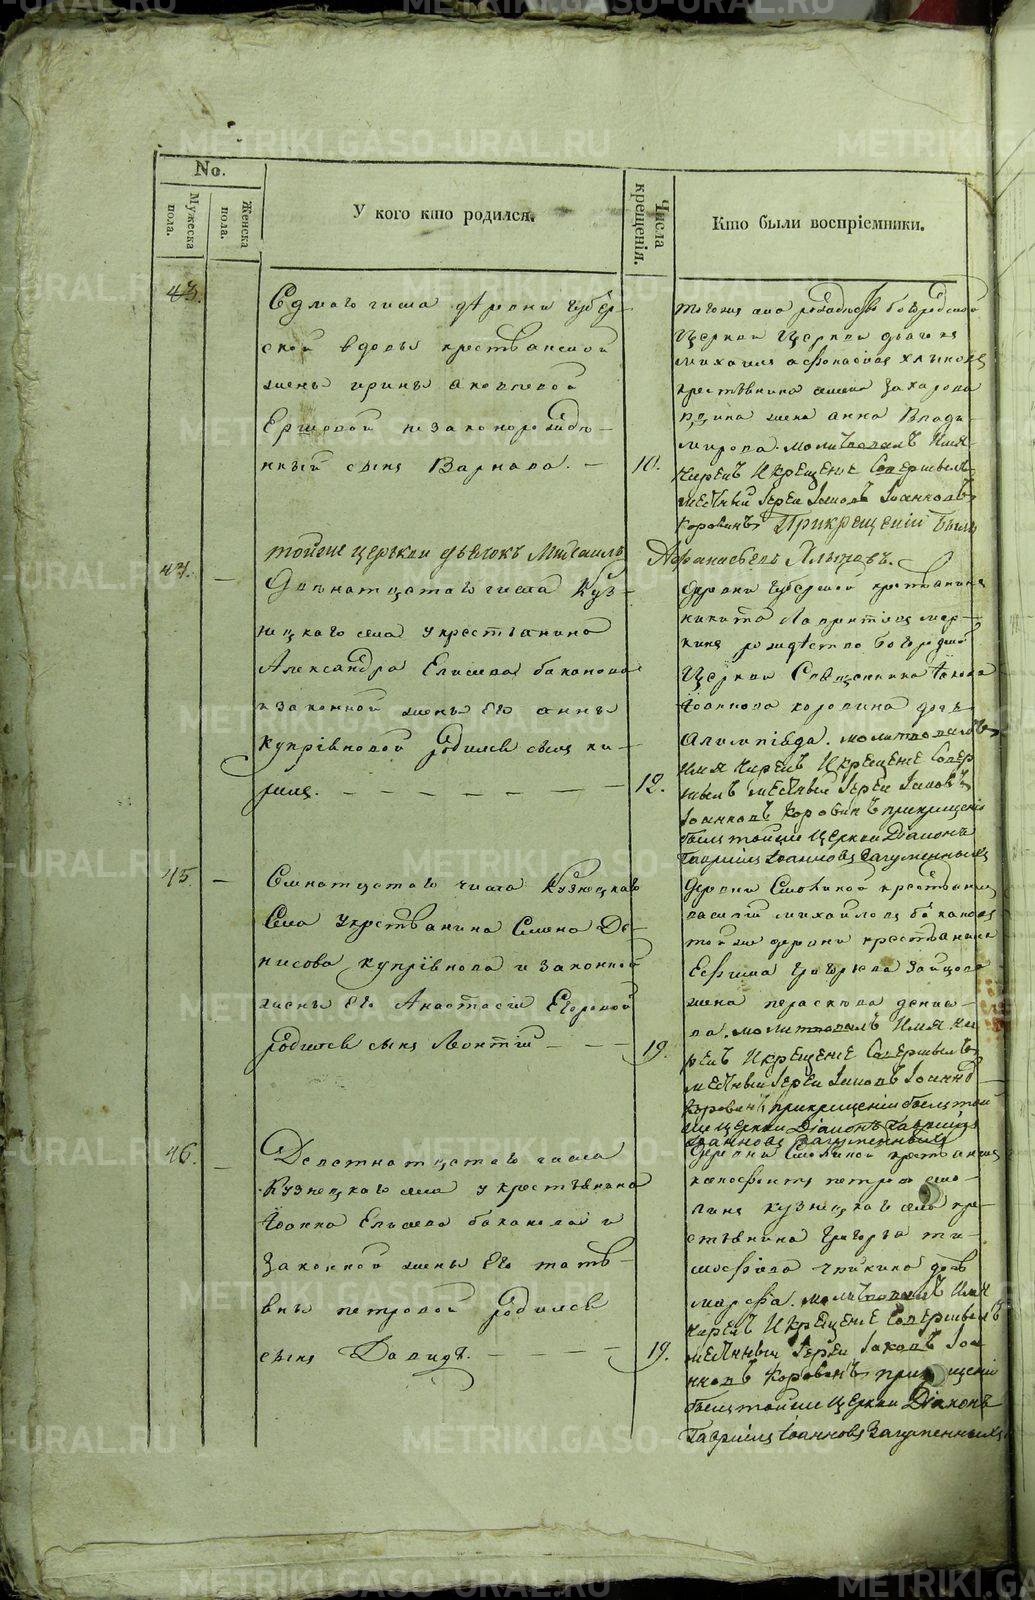 METRIKI.GASO-URAL.RU
No.
Мужеска пола.
Женска пола.
У кого кто родился.
Числа крещенія.
Кто были воспріемники.
43.
Седмаго числа деревни Губер-
ской вдовы крестьянской
жены Ирины Яковлевой
Ершовой незаконорожде-
нный сынъ Варнава. —
10.
тогожъ села рождество богородской
Церкви Церкви дьячекъ
Михаилъ Афонасіевъ Хлыновъ
крестьянина Захарова
жена Анна Влади-
мирова. молитвовалъ Имя
Нарекъ И крещение Совершилъ
местный Іерей Іаковъ Іоанновъ
Коровинъ При крещеніи былъ
тойже церькви дьячокъ Михаилъ Афанасьевъ Хлыновъ.
44. —
числа Куз-
нецкаго села у крестьянина
Александра Елисеева баканова
и законной жены Его Анны
Купріяновой родился сынъ Ки-
рилъ. — — — — — — —
12.
деревни Губерской крестьянинъ
никита Лаврентіевъ мар-
кинъ рождество богородской
Церкви Священника Іакова
Іоаннова коровина дочь
Олимпіада. молитвовалъ
Имя Нарекъ И крещение Совер
шилъ местный Іерей Іаковъ
Іоанновъ Коровинъ прикрещеніи
былъ тойже Церкви Діаконъ
Гавріилъ Іоанновъ Загуменныхъ
45. —
числа Кузнецкаго
Села у крестьянина Семена Де-
нисова купріянова и законной
жены Его Анастасіи Егоровой
родился сынъ Леонтій — — —
19.
деревни крестьянинъ
василій михайловъ бакановъ
той же деревни крестьянина
Ефима Григорьева Зайцова
жена параскева дени-
ва. молитвовалъ Имя На
рекъ И крещение Совершилъ
местный Іерей Іаковъ Іоанно
Коровинъ прикрещеніи былъ той
же церкви Діаконъ Гавріилъ
Іоанновъ Загуменныхъ
46. —
Девятнатцатаго числа
Кузнецкаго села у крестьянина
Іоанна Елисеева баканова и
Законной жены Его татья-
ны петровой родился
сынъ Давидъ. — — — —
19.
деревни крестьянинъ
ксенофонтъ петровъ
кузнецкаго села кре-
стьянина Григорья ти-
мофеева чайкина дочь
марфа. молитвовалъ Имя
Нарекъ И крещение Совершилъ
местный Іерей Іаковъ Іоа
нновъ Коровинъ при крещеніи
былъ тойже Церкви Діаконъ
Гавріилъ Іоанновъ Загуменныхъ